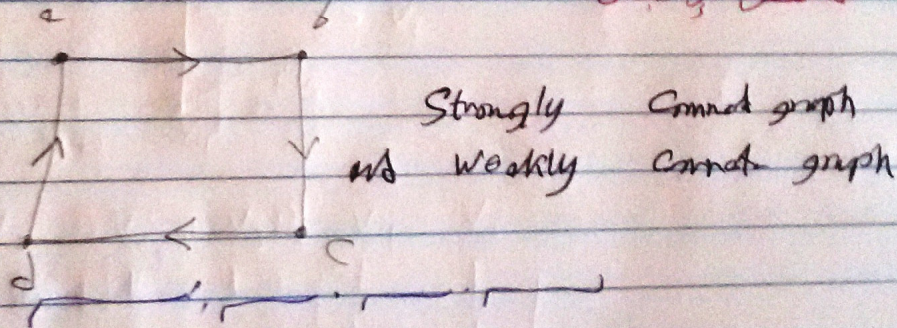 a b
Strongly Connect graph
and Weakly Connect graph
d c